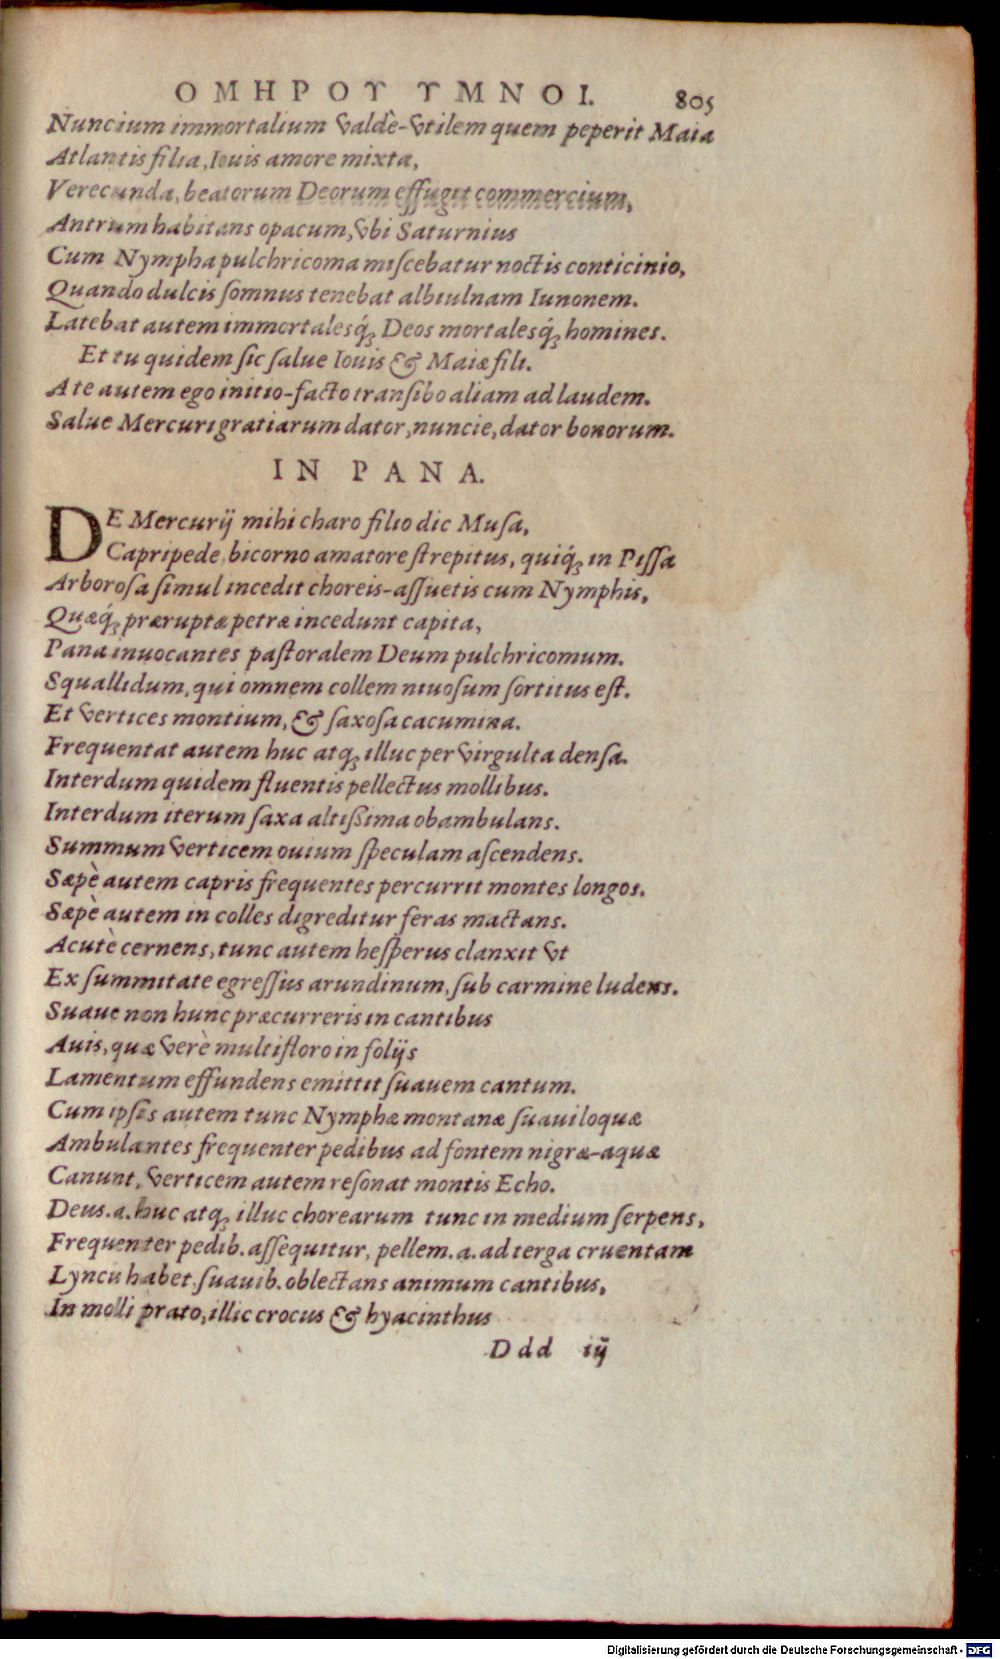 ΟΜΗΡΟΥ ΥΜΝΟΙ. 805
Nuncium immortalium valdè-vtilem quem peperit Maia
Atlantis filia, Iouis amore mixta,
Verecunda, beatorum Deorum effugit commercium,
Antrum habitans opacum, vbi Saturnius
Cum Nympha pulchricoma miscebatur noctis conticinio,
Quando dulcis somnus tenebat albiulnam Iunonem.
Latebat autem immortalesq́; Deos mortalesq́; homines.
Et tu quidem sic salue Iouis & Maiæ fili.
A te autem ego initio-facto transibo aliam ad laudem.
Salue Mercuri gratiarum dator, nuncie, dator bonorum.
IN PANA.
DE Mercurij mihi charo filio dic Musa,
Capripede, bicorno amatore strepitus, quiq́; in Pissa
Arborosa simul incedit choreis-assuetis cum Nymphis,
Quæq́; præruptæ petræ incedunt capita,
Pana inuocantes pastoralem Deum pulchricomum.
Squallidum, qui omnem collem niuosum sortitus est.
Et vertices montium, & saxosa cacumina.
Frequentat autem huc atq; illuc per virgulta densa.
Interdum quidem fluentis pellectus mollibus.
Interdum iterum saxa altissima obambulans.
Summum verticem ouium speculam ascendens.
Sæpè autem capris frequentes percurrit montes longos.
Sæpè autem in colles digreditur feras mactans.
Acutè cernens, tunc autem hesperus clanxit vt
Ex summitate egressius arundinum, sub carmine ludens.
Suaue non hunc præcurreris in cantibus
Auis, quæ verè multifloro in folijs
Lamentum effundens emittit suauem cantum.
Cum ipsis autem tunc Nymphæ montanæ suauiloquæ
Ambulantes frequenter pedibus ad fontem nigræ-aquæ
Canunt, verticem autem resonat montis Echo.
Deus .a. huc atq; illuc chorearum tunc in medium serpens,
Frequenter pedib. assequitur, pellem .a. ad terga cruentam
Lyncis habet, suauib. oblectans animum cantibus,
In molli prato, illic crocus & hyacinthus
Ddd iij
Digitalisierung gefördert durch die Deutsche Forschungsgemeinschaft - DFG